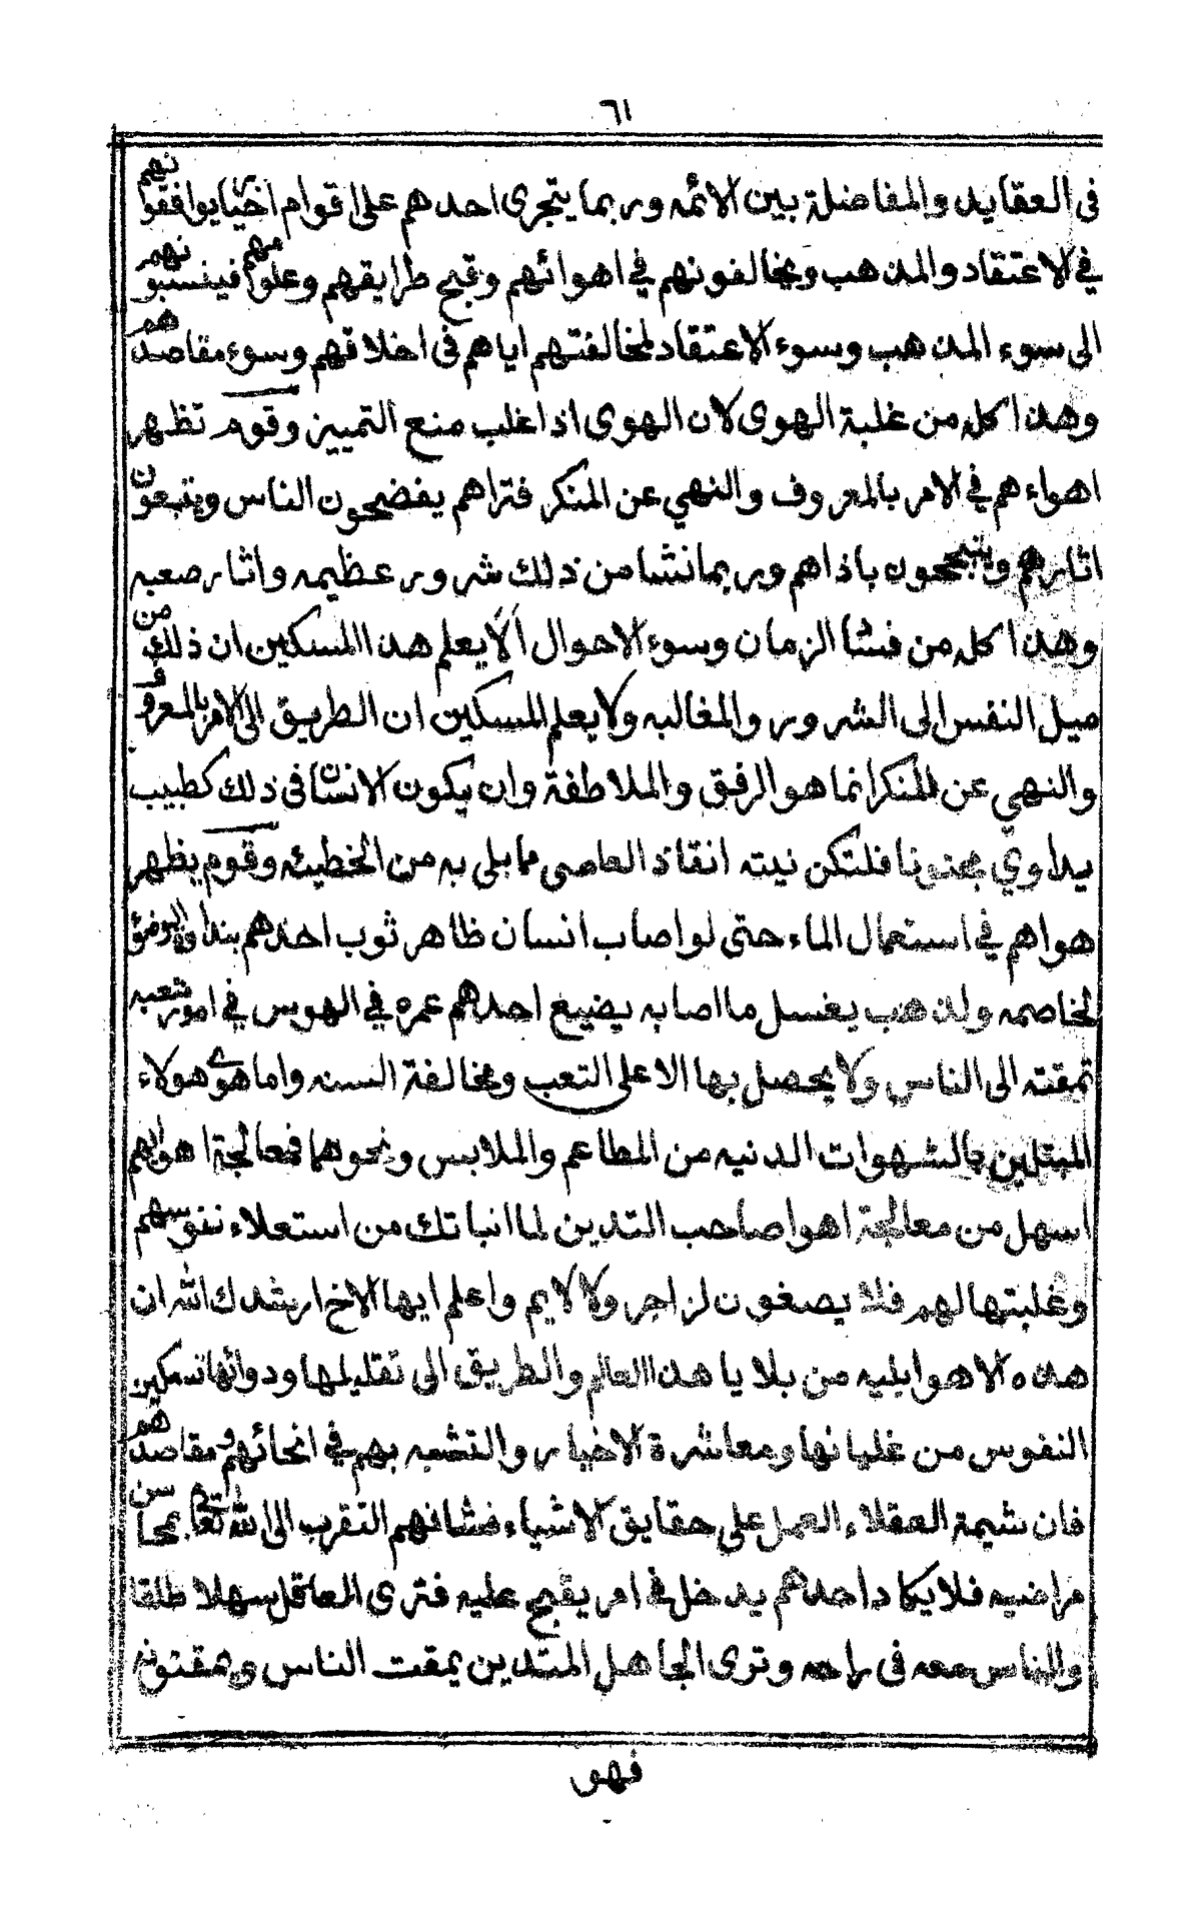 ٦١
فى العقايد والمفاضلة بين الائمه وربما يتجرى احدهم على اقوام اخيار يوافقونهم
في الاعتقاد والمذهب ويخالفونهم في اهوائهم وقبح طرايقهم وعلومهم فينسبونهم
الى سوء المذهب وسوء الاعتقاد لمخالفتهم اياهم فى اخلاقهم وسوء مقاصدهم
وهذا كله من غلبة الهوى لان الهوى اذا غلب منع التمييز وقوم تظهر
اهواءهم في الامر بالمعروف والنهي عن المنكر فتراهم يفضحون الناس ويتبعون
اثارهم ويتبجحون باذاهم وربما نشا من ذلك شرور عظيمه واثار صعبه
وهذا كله من فشا الزمان وسوء الاحوال ألا يعلم هذا المسكين ان ذلك من
ميل النفس الى الشرور والمغالبه ولا يعلم المسكين ان الطريق الى الامر بالمعروف
والنهي عن المنكر انما هو الرفق والملاطفة وان يكون الانسان في ذلك كطبيب
يداوي مجنونا فلتكن نيته انقاذ العاصى مما بلى به من الخطيئه وقوم يظهر
هواهم في استعمال الماء حتى لو اصاب انسان ظاهر ثوب احدهم بنداوة الوضوء
لخاصمه ولذهب يغسل ما اصابه يضيع احدهم عمره في الهوس في امور متعبه
تمقته الى الناس ولا يحصل بها الا على التعب ومخالفة السنه واما هوى هولاء
المبتلين بالشهوات الدنيه من المطاعم والملابس ونحوهما فمعالجة اهوايهم
اسهل من معالجة اهوا صاحب التدين لما انباتك من استعلاء نفوسهم
وغلبتها لهم فلا يصغون لزاجر ولا لايم واعلم ايها الاخ ارشدك الله ان
هذه الاهوا بليه من بلايا هذا العالم والطريق الى تقليلها ودوائها تسكين
النفوس من غليانها ومعاشرة الاخيار والتشبه بهم في انحائهم ومقاصدهم
فان شيمة العقلاء العمل على حقايق الاشياء فشانهم التقرب الى الله تعالى بمحاسن
مراضيه فلا يكاد احدهم يدخل في امر يقبح عليه فترى العاقل سهلا طلقا
والناس معه فى راحه وترى الجاهل المتدين يمقت الناس ويمقتونه
فهو